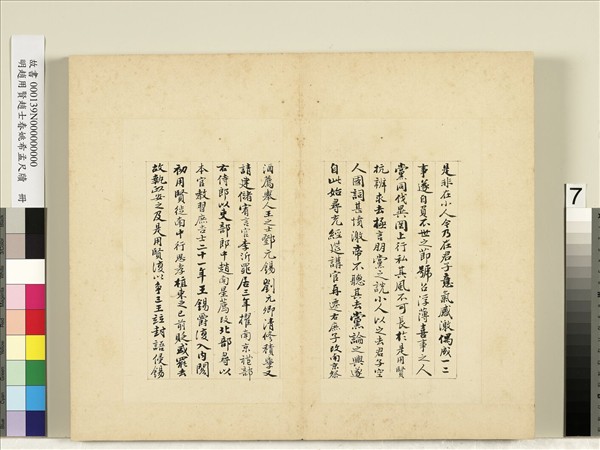 故書 000139N000000000
明趙用賢趙士春姚希孟尺牘 冊
是非在小人今乃在君子意氣感激偶成一二
事遂自負不世之節號召浮薄喜事之人
黨同伐異罔上行私其風不可長於是用賢
抗辨求去極言朋黨之說小人以之去君子空
人國詞甚憤激帝不聽其去黨論之興遂
自此始尋充經筵講官再遷右庶子改南京祭
酒薦舉人王之士鄧元錫劉元卿清修積學又
請建儲宥言官李沂罷居三年擢南京禮部
右侍郎以吏部郎中趙南星薦改北部尋以
本官教習庶吉士二十一年王錫爵復入內閣
初用賢徙南中行思孝植東之已前貶或罷去
故執政安之及是用賢復以爭三王並封語侵錫
7